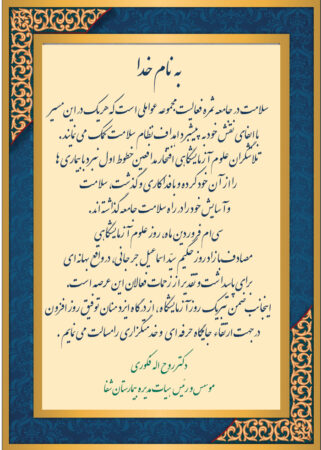 به نام خدا
سلامت در جامعه ثمره فعالیت مجموعه عواملی است که هر یک در این مسیر
با ایفای نقش خود به پیشبرد اهداف نظام سلامت کمک می نمایند.
تلاشگران علوم آزمایشگاهی افتخار مدافعین خطوط اول نبرد با بیماری ها
را از آن خود کرده و با فداکاری و گذشت، سلامت
و آسایش خود را در راه سلامت جامعه گذاشته اند.
سی ام فروردین ماه، روز علوم آزمایشگاهی
مصادف با زادروز حکیم سید اسماعیل جرجانی، در واقع بهانه ای
برای پاسداشت و تقدیر از زحمات فعالان این عرصه است.
اینجانب ضمن تبریک روز آزمایشگاه، از درگاه ایزد منان توفیق روز افزون
در جهت ارتقاء جایگاه حرفه ای و خدمتگزاری را مسالت می نمایم.
دکتر روح اله فکوری
موسس و رئیس هیات مدیره بیمارستان شفا